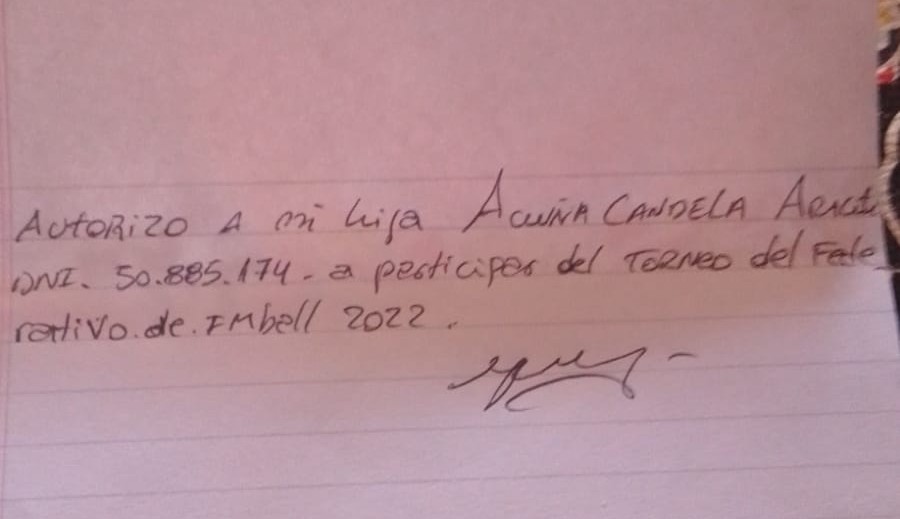 AUTORIZO A mi hija ACUÑA CANDELA
DNI. 50.885.174 - a participar del TORNEO del Fede
rativo.de.FMball 2022.